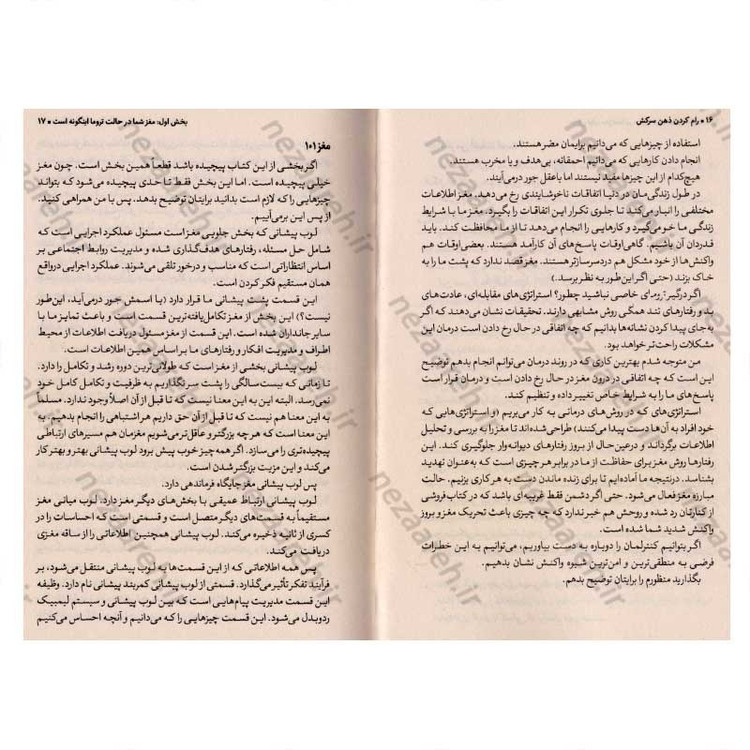 ۱۶ • رام کردن ذهن سرکش
استفاده از چیزهایی که می‌دانیم برایمان مضر هستند.
انجام دادن کارهایی که می‌دانیم احمقانه، بی‌هدف و یا مخرب هستند.
هیچ‌کدام از این چیزها مفید نیستند اما با عقل جور درمی‌آیند.
در طول زندگی‌مان در دنیا اتفاقات ناخوشایندی رخ می‌دهد. مغز اطلاعات
مختلفی را انبار می‌کند تا جلوی تکرار این اتفاقات را بگیرد. مغز ما با شرایط
زندگی ما خو می‌گیرد و کارهایی را انجام می‌دهد تا از ما محافظت کند. باید
قدردان آن باشیم. گاهی‌اوقات پاسخ‌های آن کارآمد هستند. بعضی‌اوقات هم
واکنش‌ها از خود مشکل هم دردسرسازتر هستند. مغز قصد ندارد که پشت ما را به
خاک بزند (حتی اگر این‌طور به نظر برسد.)
اگر درگیر ترومای خاصی نباشید چطور؟ استراتژی‌های مقابله‌ای، عادت‌های
بد و رفتارهای تند همگی روش مشابهی دارند. تحقیقات نشان می‌دهند که اگر
به‌جای پیدا کردن نشانه‌ها بدانیم که چه اتفاقی در حال رخ دادن است درمان این
مشکلات راحت‌تر خواهد بود.
من متوجه شدم بهترین کاری که در روند درمان می‌توانم انجام بدهم توضیح
این است که چه اتفاقی در درون مغز در حال رخ دادن است و درمان قرار است
پاسخ‌های ما را به شرایط خاص تغییر داده و تنظیم کند.
استراتژی‌هایی که در روش‌های درمانی به کار می‌بریم (و استراتژی‌هایی که
خود افراد به آن‌ها دست پیدا می‌کنند) طراحی‌شده‌اند تا مغز را به بررسی و تحلیل
اطلاعات برگرداند و درعین‌حال از بروز رفتارهای دیوانه‌وار جلوگیری کند. این
رفتارها روش مغز برای حفاظت از ما در برابر هر چیزی است که به‌عنوان تهدید
بشناسد. درنتیجه ما آماده‌ایم تا برای زنده ماندن دست به هر کاری بزنیم. حالت
مبارزه مغز فعال می‌شود. حتی اگر دشمن فقط غریبه‌ای باشد که در کتاب‌فروشی
از کنارتان رد شده و روحش هم خبر ندارد که چه چیزی باعث تحریک مغز و بروز
واکنش شدید شما شده است.
اگر بتوانیم کنترلمان را دوباره به دست بیاوریم، می‌توانیم به این خطرات
فرضی به منطقی‌ترین و امن‌ترین شیوه واکنش نشان بدهیم.
بگذارید منظورم را برایتان توضیح بدهم.
بخش اول: مغز شما در حالت تروما اینگونه است • ۱۷
مغز ۱۰۱
اگر بخشی از این کتاب پیچیده باشد قطعاً همین بخش است. چون مغز
خیلی پیچیده است. اما این بخش فقط تا حدی پیچیده می‌شود که بتواند
چیزهایی را که لازم است بدانید برایتان توضیح بدهد. پس با من همراهی کنید.
از پس این برمی‌آییم.
لوب پیشانی که بخش جلویی مغز است مسئول عملکرد اجرایی است که
شامل حل مسئله، رفتارهای هدف‌گذاری شده و مدیریت روابط اجتماعی بر
اساس انتظاراتی است که مناسب و درخور تلقی می‌شوند. عملکرد اجرایی درواقع
همان مستقیم فکر کردن است.
این قسمت پشت پیشانی ما قرار دارد (با اسمش جور درمی‌آید، این‌طور
نیست؟) این بخش از مغز تکامل‌یافته‌ترین قسمت است و باعث تمایز ما با
سایر جانداران شده است. این قسمت از مغز مسئول دریافت اطلاعات از محیط
اطراف و مدیریت افکار و رفتارهای ما بر اساس همین اطلاعات است.
لوب پیشانی بخشی از مغز است که طولانی‌ترین دوره رشد و تکامل را دارد.
تا زمانی که بیست‌سالگی را پشت سر نگذاریم به ظرفیت و تکامل کامل خود
نمی‌رسد. البته این به این معنا نیست که تا قبل از آن اصلاً وجود ندارد. مسلماً
به این معنا هم نیست که تا قبل از آن حق داریم هر اشتباهی را انجام بدهیم. به
این معنا است که هر چه بزرگتر و عاقل‌تر می‌شویم مغزمان هم مسیرهای ارتباطی
پیچیده‌تری را می‌سازد. اگر همه چیز خوب پیش برود لوب پیشانی بهتر و بهتر کار
می‌کند و این مزیت بزرگتر شدن است.
پس لوب پیشانی مغز جایگاه فرماندهی دارد.
لوب پیشانی ارتباط عمیقی با بخش‌های دیگر مغز دارد. لوب میانی مغز
مستقیماً به قسمت‌های دیگر متصل است و قسمتی است که احساسات را در
کسری از ثانیه ذخیره می‌کند. لوب پیشانی همچنین اطلاعاتی را از ساقه مغزی
دریافت می‌کند.
پس همه اطلاعاتی که از این قسمت‌ها به لوب پیشانی منتقل می‌شود، بر
فرآیند تفکر تأثیر می‌گذارد. قسمتی از لوب پیشانی کمربند پیشانی نام دارد. وظیفه
این قسمت مدیریت پیام‌هایی است که بین لوب پیشانی و سیستم لیمبیک
ردوبدل می‌شود. این قسمت چیزهایی را که می‌دانیم و آنچه احساس می‌کنیم
nezaareh.ir